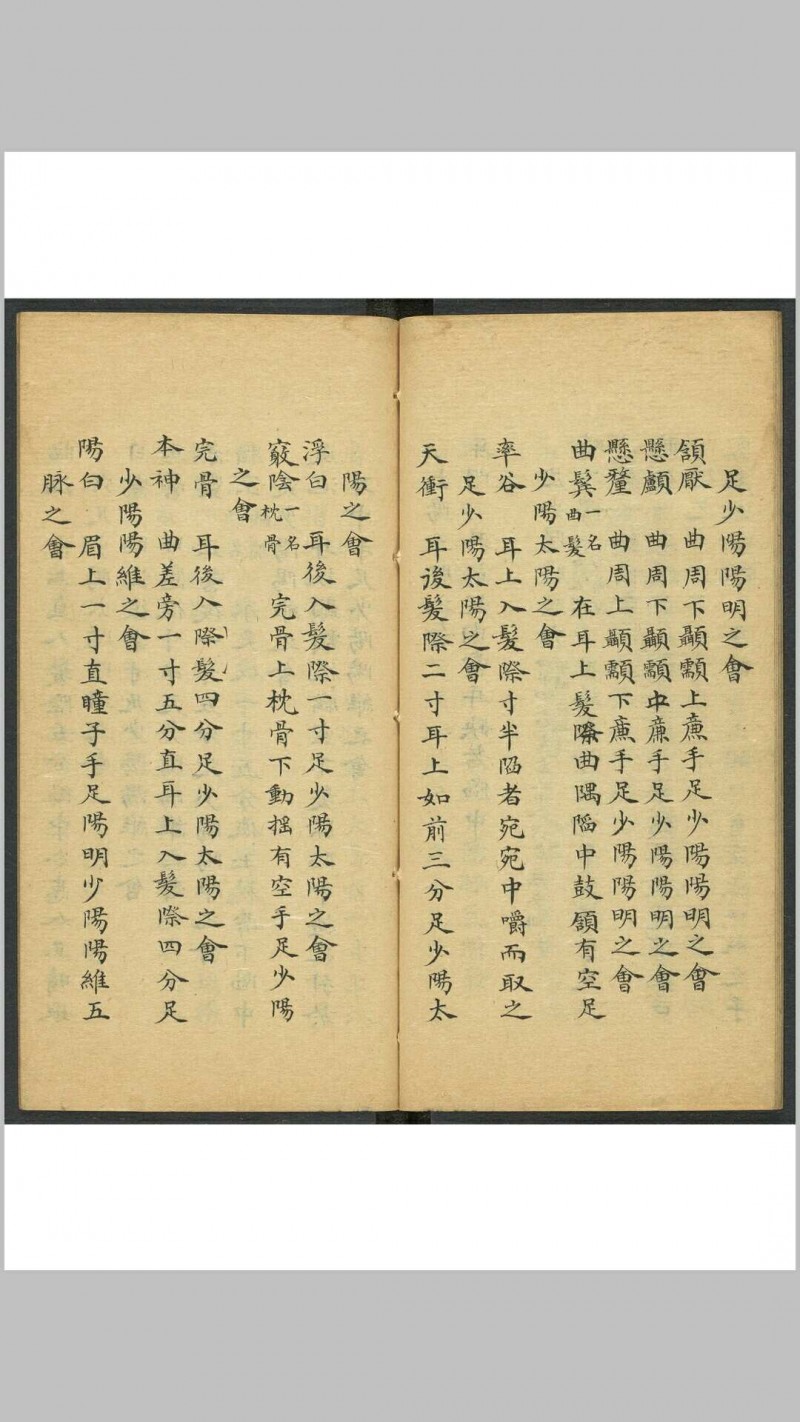 足少陽陽明之會
頷厭　曲周下顳顬上廉手足少陽陽明之會
懸顱　曲周下顳顬中廉手足少陽陽明之會
懸釐　曲周上顳顬下廉手足少陽陽明之會
曲鬢一名曲髮　在耳上髮際曲隅陷中鼓頷有空足
少陽太陽之會
率谷　耳上入髮際寸半陷者宛宛中嚼而取之
足少陽太陽之會
天衝　耳後髮際二寸耳上如前三分足少陽太
陽之會
浮白　耳後入髮際一寸足少陽太陽之會
竅陰一名枕骨　完骨上枕骨下動揺有空手足少陽
之會
完骨　耳後入際髮四分足少陽太陽之會
本神　曲差旁一寸五分直耳上入髮際四分足
少陽陽維之會
陽白　眉上一寸直瞳子手足陽明少陽陽維五
脉之會